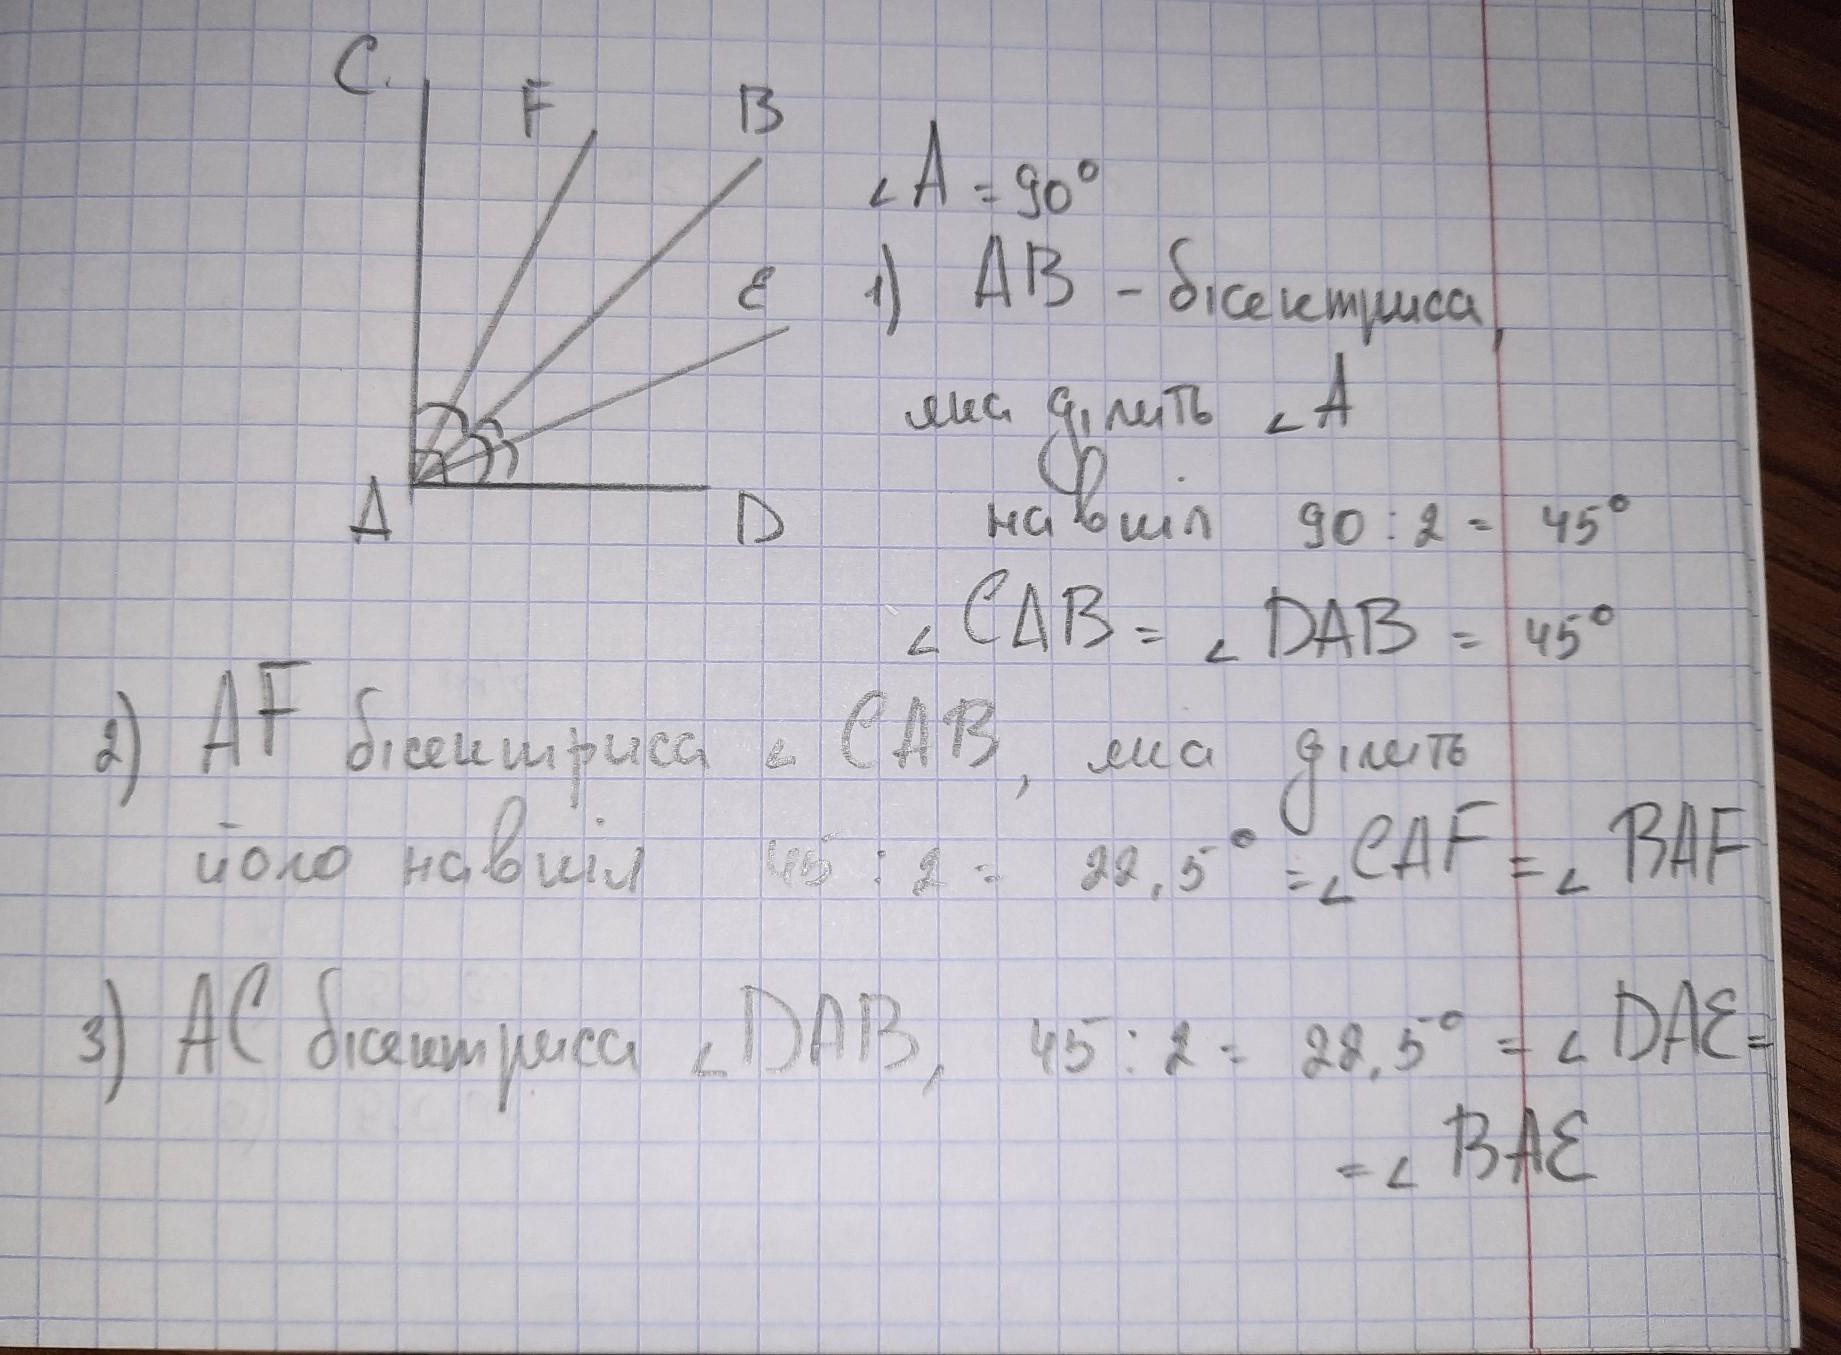 C.
F
B
E
A
D
∠A = 90°
1) AB - бісектриса,
яка ділить ∠A
навпіл 90 : 2 = 45°
∠CAB = ∠DAB = 45°
2) AF бісектриса ∠ CAB, яка ділить
його навпіл 45 : 2 = 22,5° = ∠CAF = ∠BAF
3) AC бісектриса ∠DAB, 45 : 2 = 22,5° = ∠DAE =
= ∠BAE